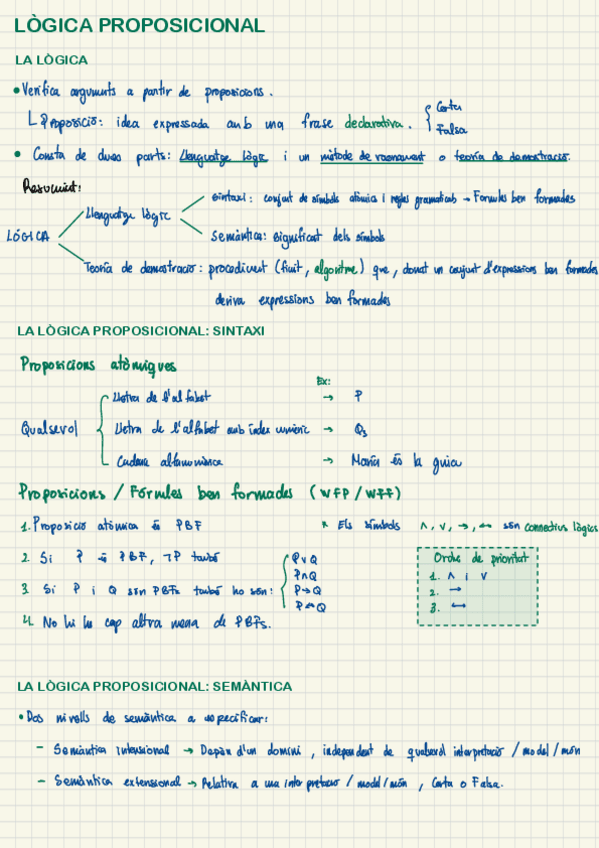 LÒGICA PROPOSICIONAL
LA LÒGICA
• Verifica arguments a partir de proposicions.
Proposició: idea expressada amb una frase declarativa. { Certa
Falsa
• Consta de dues parts: llenguatge lògic i un mètode de raonament o teoria de demostració.
Resumint:
LÒGICA
Llenguatge lògic
Sintaxi: conjunt de símbols atòmics i regles gramaticals → Fórmules ben formades
Semàntica: significat dels símbols
Teoria de demostració: procediment (finit, algoritme) que, donat un conjunt d'expressions ben formades
deriva expressions ben formades
LA LÒGICA PROPOSICIONAL: SINTAXI
Proposicions atòmiques
Ex:
Qualsevol
Lletra de l'alfabet → P
Lletra de l'alfabet amb índex numèric → Q₃
Cadena alfanumèrica → Maria és la guia
Proposicions / Fórmules ben formades (WFP / WFF)
1. Proposició atòmica és PBF
* Els símbols ∧, ∨, →, ↔ són connectius lògics
2. Si P és PBF, ¬P també
3. Si P i Q són PBFs també ho són:
P∨Q
P∧Q
P→Q
P↔Q
Ordre de prioritat
1. ∧ i ∨
2. →
3. ↔
4. No hi ha cap altra mena de PBFs.
LA LÒGICA PROPOSICIONAL: SEMÀNTICA
• Dos nivells de semàntica a especificar:
- Semàntica intensional → Depèn d'un domini, independent de qualsevol interpretació / model / món
- Semàntica extensional → Relativa a una interpretació / model / món, Certa o Falsa.